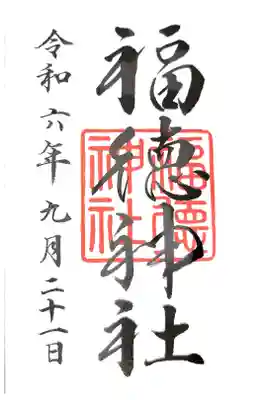 福徳神社
福德
神社
令和六年九月二十一日